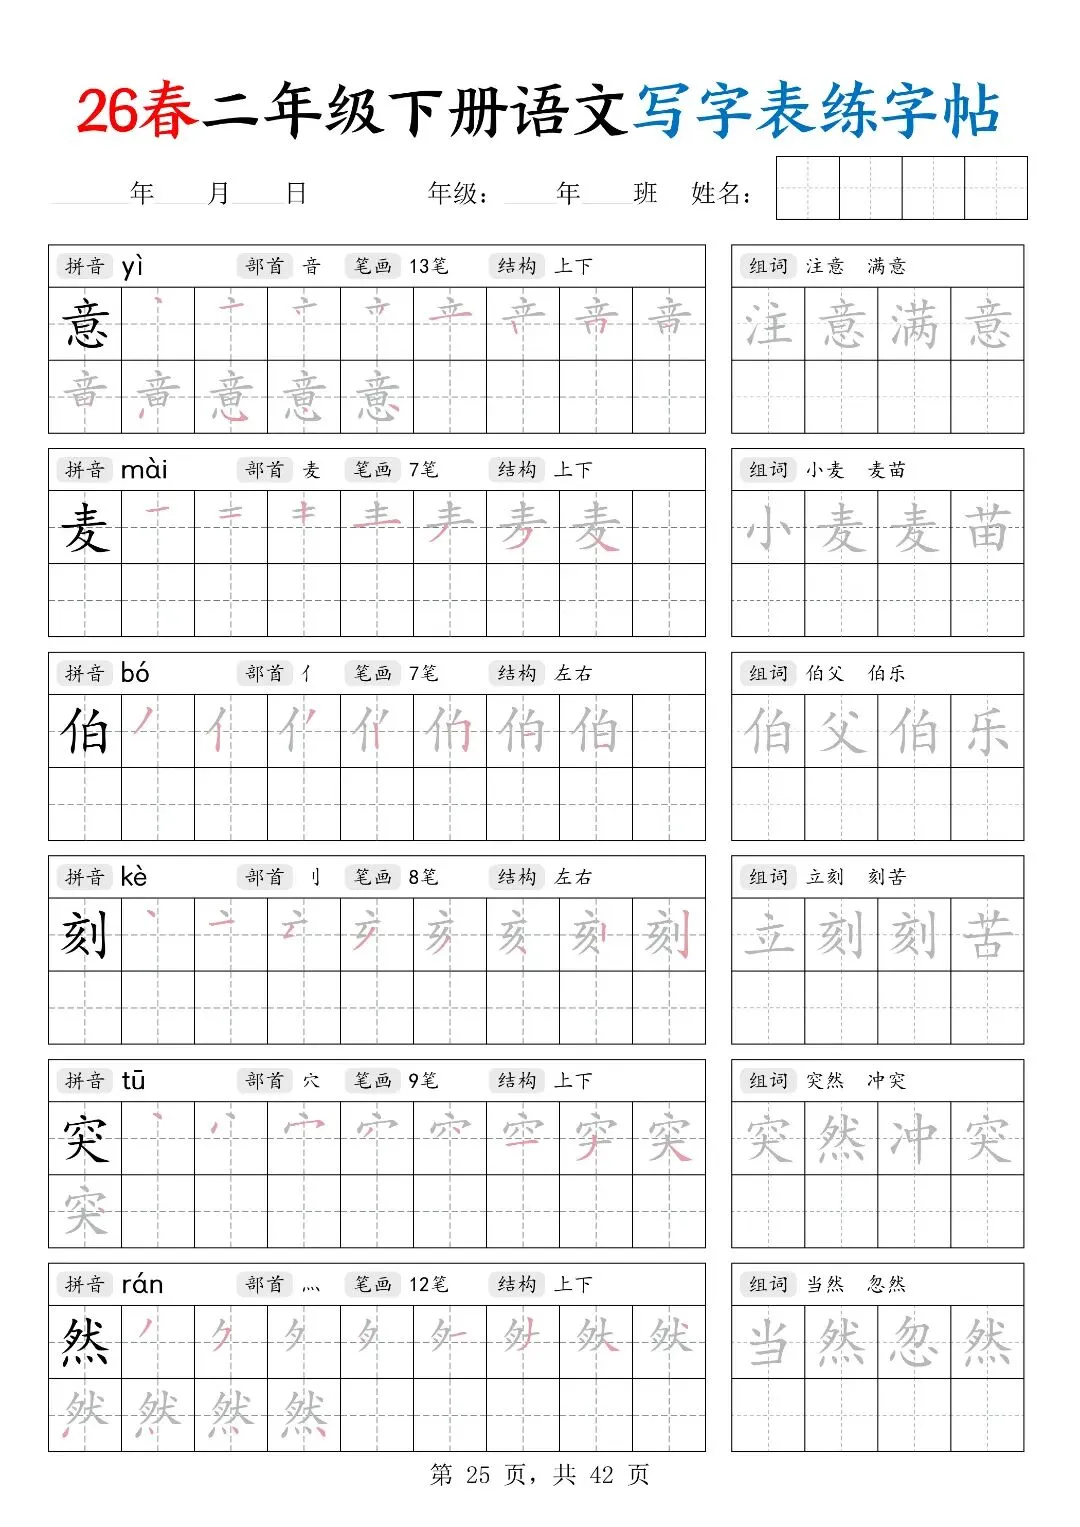 26春二年级下册语文写字表练字帖
年 月 日 年级： 年 班 姓名：
拼音 yì 部首 音 笔画 13笔 结构 上下 组词 注意 满意
意 注 意 满 意
拼音 mài 部首 麦 笔画 7笔 结构 上下 组词 小麦 麦苗
麦 小 麦 麦 苗
拼音 bó 部首 亻 笔画 7笔 结构 左右 组词 伯父 伯乐
伯 伯 父 伯 乐
拼音 kè 部首 刂 笔画 8笔 结构 左右 组词 立刻 刻苦
刻 立 刻 刻 苦
拼音 tū 部首 穴 笔画 9笔 结构 上下 组词 突然 冲突
突 突 然 冲 突
突
拼音 rán 部首 灬 笔画 12笔 结构 上下 组词 当然 忽然
然 当 然 忽 然
第 25 页，共 42 页